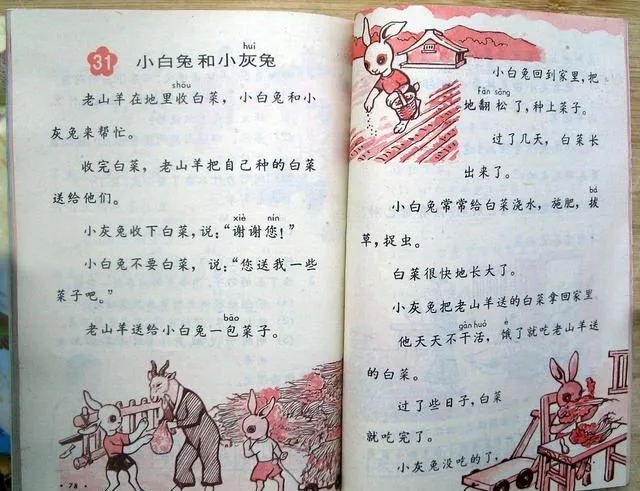 huī
31 小白兔和小灰兔
shōu
老山羊在地里收白菜，小白兔和小
灰兔来帮忙。
收完白菜，老山羊把自己种的白菜
送给他们。
xiè nín
小灰兔收下白菜，说：“谢谢您！”
小白兔不要白菜，说：“您送我一些
菜子吧。”
bāo
老山羊送给小白兔一包菜子。
·78·
小白兔回到家里，把
fān sōng
地翻松了，种上菜子。
过了几天，白菜长
出来了。
bá
小白兔常常给白菜浇水，施肥，拔
草，捉虫。
白菜很快地长大了。
小灰兔把老山羊送的白菜拿回家里
gàn huó è
他天天不干活，饿了就吃老山羊送
的白菜。
过了些日子，白菜
就吃完了。
小灰兔没吃的了，